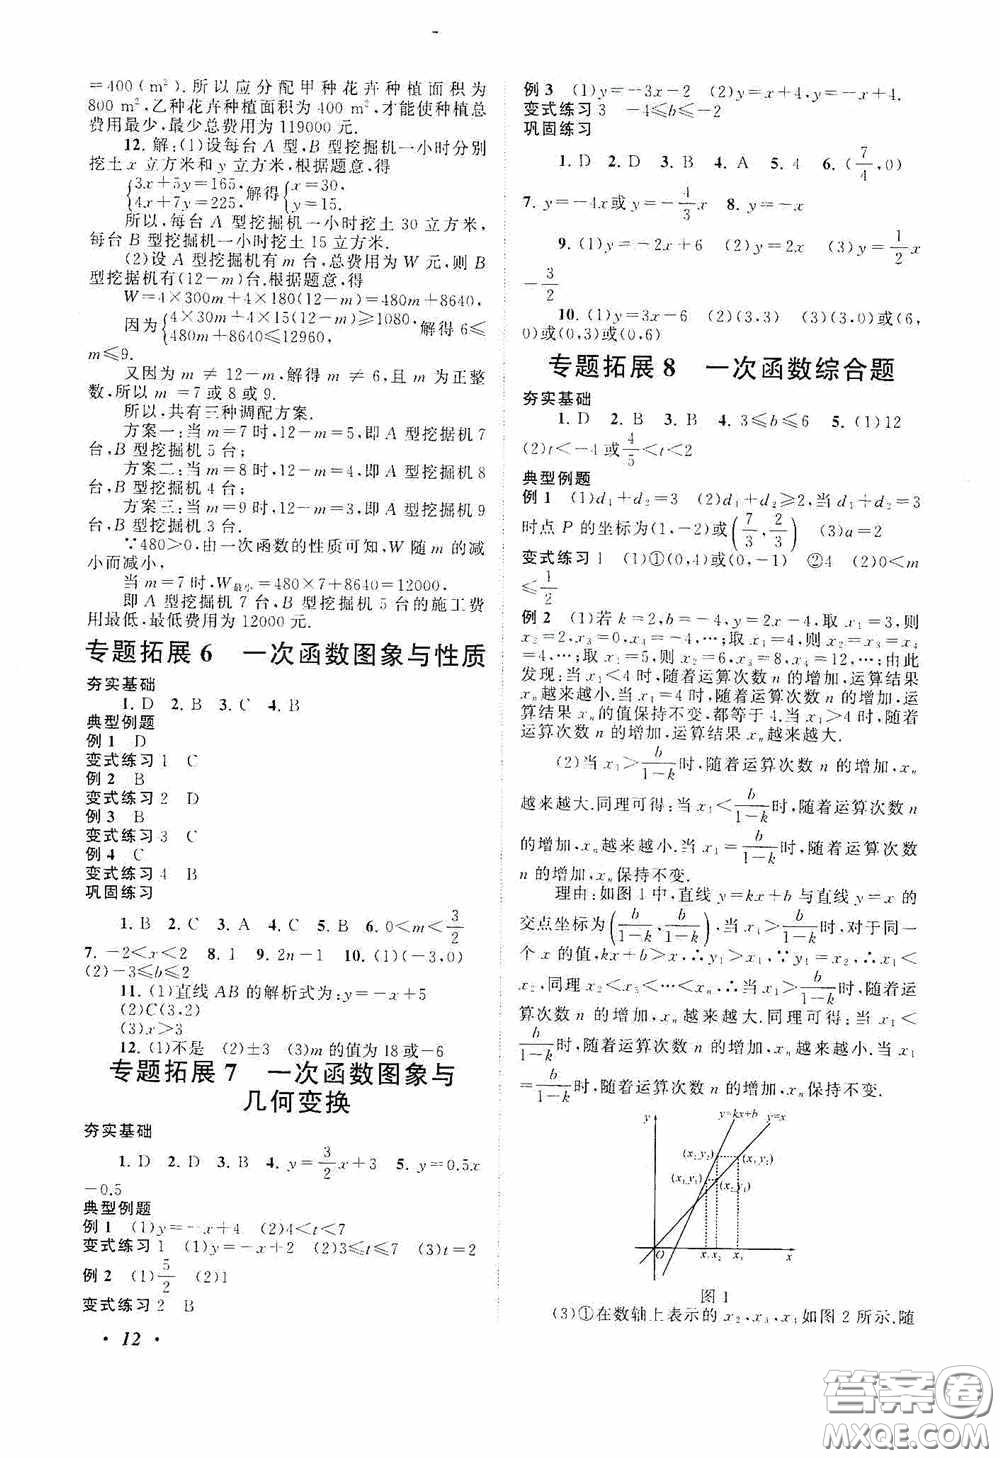 =400(m²).所以应分配甲种花卉种植面积为
800 m²,乙种花卉种植面积为 400 m²,才能使种植总
费用最少,最少总费用为 119000 元.
12.解:(1)设每台 A 型,B 型挖掘机一小时分别
挖土 x 立方米和 y 立方米,根据题意,得
{3x+5y=165, 4x+7y=225. 解得{x=30, y=15.
所以,每台 A 型挖掘机一小时挖土 30 立方米,
每台 B 型挖掘机一小时挖土 15 立方米.
(2)设 A 型挖掘机有 m 台,总费用为 W 元,则 B
型挖掘机有(12-m)台.根据题意,得
W=4×300m+4×180(12-m)=480m+8640,
因为{4×30m+4×15(12-m)≥1080, 480m+8640≤12960, 解得 6≤
m≤9.
又因为 m≠12-m,解得 m≠6,且 m 为正整
数,所以 m=7或8或9.
所以,共有三种调配方案.
方案一:当 m=7 时,12-m=5,即 A 型挖掘机 7
台,B 型挖掘机 5 台;
方案二:当 m=8 时,12-m=4,即 A 型挖掘机 8
台,B 型挖掘机 4 台;
方案三:当 m=9 时,12-m=3,即 A 型挖掘机 9
台,B 型挖掘机 3 台.
∵480>0,由一次函数的性质可知,W 随 m 的减
小而减小,
当 m=7 时,W最小=480×7+8640=12000.
即 A 型挖掘机 7 台,B 型挖掘机 5 台的施工费
用最低,最低费用为 12000 元.
专题拓展 6 一次函数图象与性质
夯实基础
1.D 2.B 3.C 4.B
典型例题
例 1 D
变式练习 1 C
例 2 B
变式练习 2 D
例 3 B
变式练习 3 C
例 4 C
变式练习 4 B
巩固练习
1.B 2.C 3.A 4.C 5.B 6.0<m<3/2
7.-2<x<2 8.1 9.2n-1 10.(1)(-3,0)
(2)-3≤b≤2
11.(1)直线 AB 的解析式为:y=-x+5
(2)C(3,2)
(3)x>3
12.(1)不是 (2)±3 (3)m 的值为 18 或-6
专题拓展 7 一次函数图象与
几何变换
夯实基础
1.D 2.D 3.B 4.y=3/2x+3 5.y=0.5x
-0.5
典型例题
例 1 (1)y=-x+4 (2)4<t<7
变式练习 1 (1)y=-x+2 (2)3≤t≤7 (3)t=2
例 2 (1)5/2 (2)1
变式练习 2 B
· 12 ·
例 3 (1)y=-3x-2 (2)y=x+4.
变式练习 3 -4≤b≤-2
巩固练习
1.D 2.D 3.B 4.A 5.4 6.(7/4,0)
7.y=-4x或y=-4/3x 8.y=-x
9.(1)y=-2x+6 (2)y=2x (3)y=1/2x
-3/2
10.(1)y=3x-6 (2)(3,3) (3)(3,0)或(6,
0)或(0,3)或(0,6)
专题拓展 8 一次函数综合题
夯实基础
1.D 2.B 3.B 4.3≤b≤6 5.(1)12
(2)t<-4或4/5<t<2
典型例题
例 1 (1)d₁+d₂=3 (2)d₁+d₂≥2,当 d₁+d₂=3
时点 P 的坐标为(1,-2)或(7/3,2/3) (3)a=2
变式练习 1 (1)①(0,4)或(0,-1) ②4 (2)0<m
≤1/2
例 2 (1)若 k=2,b=-4,y=2x-4,取 x₁=3,则
x₂=2,x₃=0,x₄=-4,…;取 x₁=4,则 x₂=4,x₃=x₄
=4,…;取 x₁=5,则 x₂=6,x₃=8,x₄=12,…;由此
发现:当 x₁<4 时,随着运算次数 n 的增加,运算结果
xₙ越来越小.当 x₁=4 时,随着运算次数 n 的增加,运
算结果 xₙ的值保持不变,都等于 4.当 x₁>4 时,随着
运算次数 n 的增加,运算结果 xₙ越来越大.
(2)当 x₁>b/(1-k)时,随着运算次数 n 的增加,xₙ
越来越大.同理可得:当 x₁<b/(1-k)时,随着运算次数 n
的增加,xₙ越来越小.当 x₁=b/(1-k)时,随着运算次数
n 的增加,xₙ保持不变.
理由:如图 1 中,直线 y=kx+b 与直线 y=x 的
交点坐标为(b/(1-k),b/(1-k)),当 x₁>b/(1-k)时,对于同一
个 x 的值,kx+b>x,∴y₁>x₁,∵y₁=x₂,∴x₁<
x₂,同理 x₂<x₃<…<xₙ,∴当 x₁>b/(1-k)时,随着运
算次数 n 的增加,xₙ越来越大.同理可得:当 x₁<
b/(1-k)时,随着运算次数 n 的增加,xₙ越来越小.当 x₁=
b/(1-k)时,随着运算次数 n 的增加,xₙ保持不变.
y y=kx+b y=x
(x₂,y₂) (x₃,y₂)
(x₁,y₁) (x₂,y₁)
O x₁ x₂ x₃ x
图 1
(3)①在数轴上表示的 x₂,x₃,x₄如图 2 所示.随
答案卷
MXQE.COM